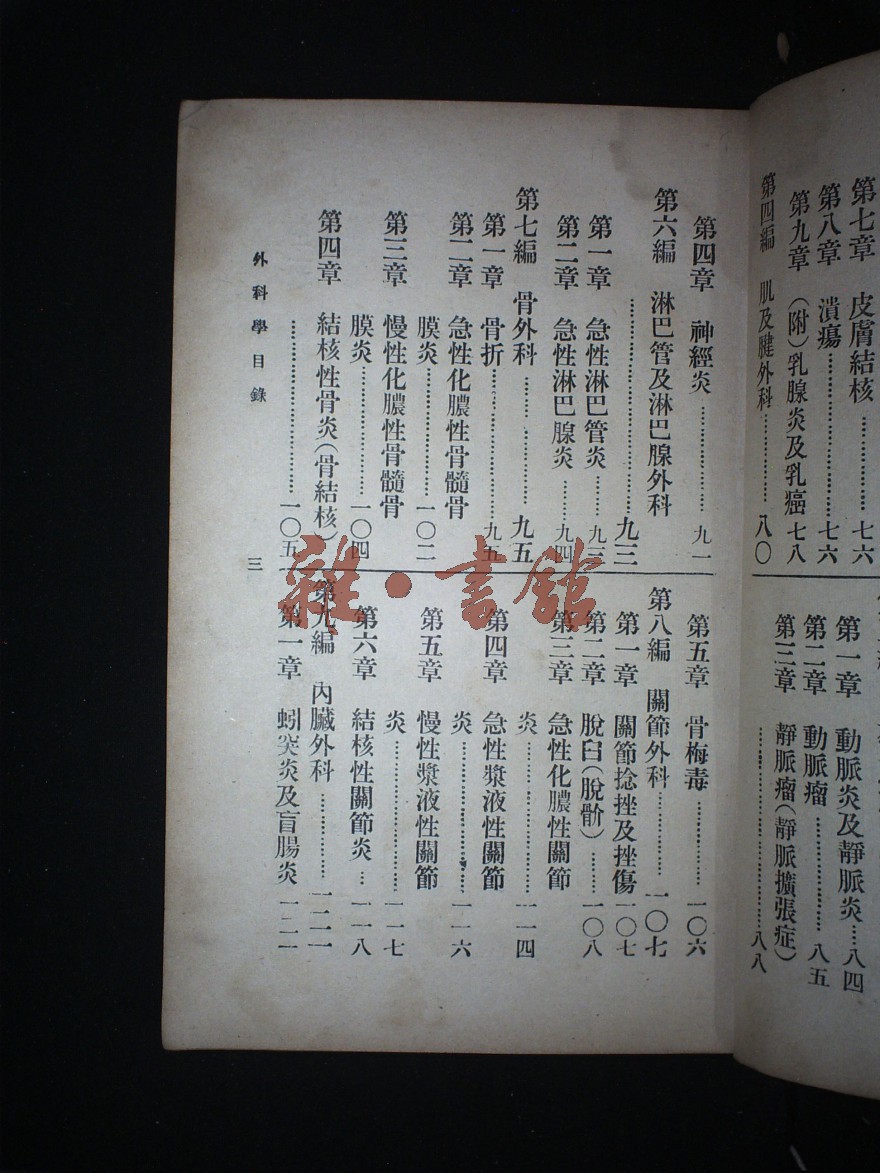 第七章　皮膚結核……七六
第八章　潰瘍……七六
第九章　（附）乳腺炎及乳癌 七八
第四編　肌及腱外科……八〇
第一章　動脈炎及靜脈炎…八四
第二章　動脈瘤……八五
第三章　靜脈瘤（靜脈擴張症）
……八八
第四章　神經炎……九一
第六編　淋巴管及淋巴腺外科
……九三
第一章　急性淋巴管炎……九三
第二章　急性淋巴腺炎……九四
第七編　骨外科……九五
第一章　骨折……九五
第二章　急性化膿性骨髓骨
膜炎……一〇二
第三章　慢性化膿性骨髓骨
膜炎……一〇四
第四章　結核性骨炎（骨結核）
……一〇五
第五章　骨梅毒……一〇六
第八編　關節外科……一〇七
第一章　關節捻挫及挫傷 一〇七
第二章　脫臼（脫骱）……一〇八
第三章　急性化膿性關節
炎……一一四
第四章　急性漿液性關節
炎……一一六
第五章　慢性漿液性關節
炎……一一七
第六章　結核性關節炎…一一八
第九編　內臟外科……一二一
第一章　蚓突炎及盲腸炎 一二一
外科學目錄
三
雜·書館